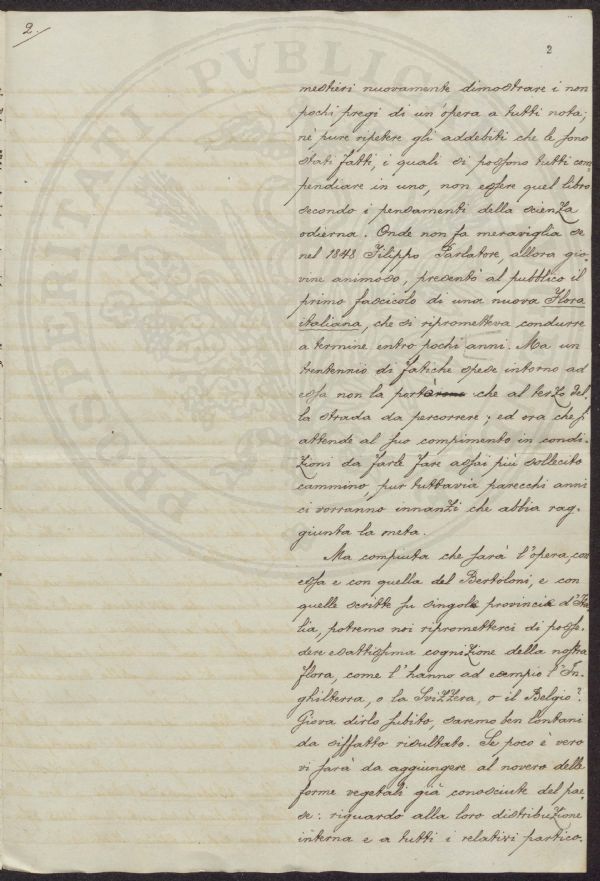 2.
2
mestieri nuovamente dimostrare i non
pochi pregi di un'opera a tutti nota;
nè pure ripetere gli addebiti che le sono
stati fatti, i quali si possono tutti com
pendiare in uno, non essere quel libro
secondo i pensamenti della scienza
odierna. Onde non fa meraviglia se
nel 1848 Filippo Parlatore, allora gio-
vine animoso, presentò al pubblico il
primo fascicolo di una nuova Flora
italiana, che si riprometteva condurre
a termine entro pochi anni. Ma un
trentennio di fatiche spese intorno ad
essa non la portò che al terzo del
la strada da percorrere; ed ora che s'
attende al suo compimento in condi-
zioni da farle fare assai più sollecito
cammino, pur tuttavia parecchi anni
ci vorranno innanzi che abbia rag-
giunta la meta.
Ma compiuta che sarà l'opera, con
essa e con quella del Bertoloni, e con
quelle scritte su singole provincie d'Ita
lia, potremo noi riprometterci di posse-
dere esattissima cognizione della nostra
flora, come l'hanno ad esempio l'In-
ghilterra, o la Svizzera, o il Belgio?
Giova dirlo subito, saremo ben lontani
da siffatto risultato. Se poco è vero
vi sarà da aggiungere al novero delle
forme vegetali già conosciute del pae
se: riguardo alla loro distribuzione
interna e a tutti i relativi partico-
PROSPERITATI PVBLICAE